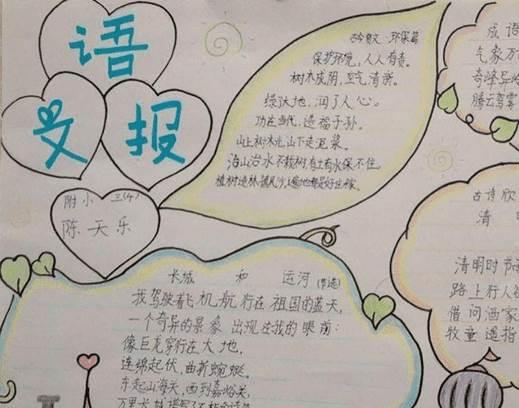 语
文报
附小 三(4)
陈天乐
保护环境,人人有责。
树木成阴,空气清新。
绿沃地,润了人心。
功在当代,造福子孙。
山上树木光,山下走泥浆。
治山治水不栽树,有土有水保不住。
植树造林,
长城 和 运河(节选)
我驾驶着飞机航行在祖国的蓝天,
一个奇异的景象出现在我的眼前:
像巨龙穿行在大地,
连绵起伏,曲折蜿蜒。
东起山海关,西到嘉峪关,
万里长城
成语
气象万
奇峰异
腾云驾雾
古诗欣
清明
清明时节
路上行人
借问酒家
牧童遥指